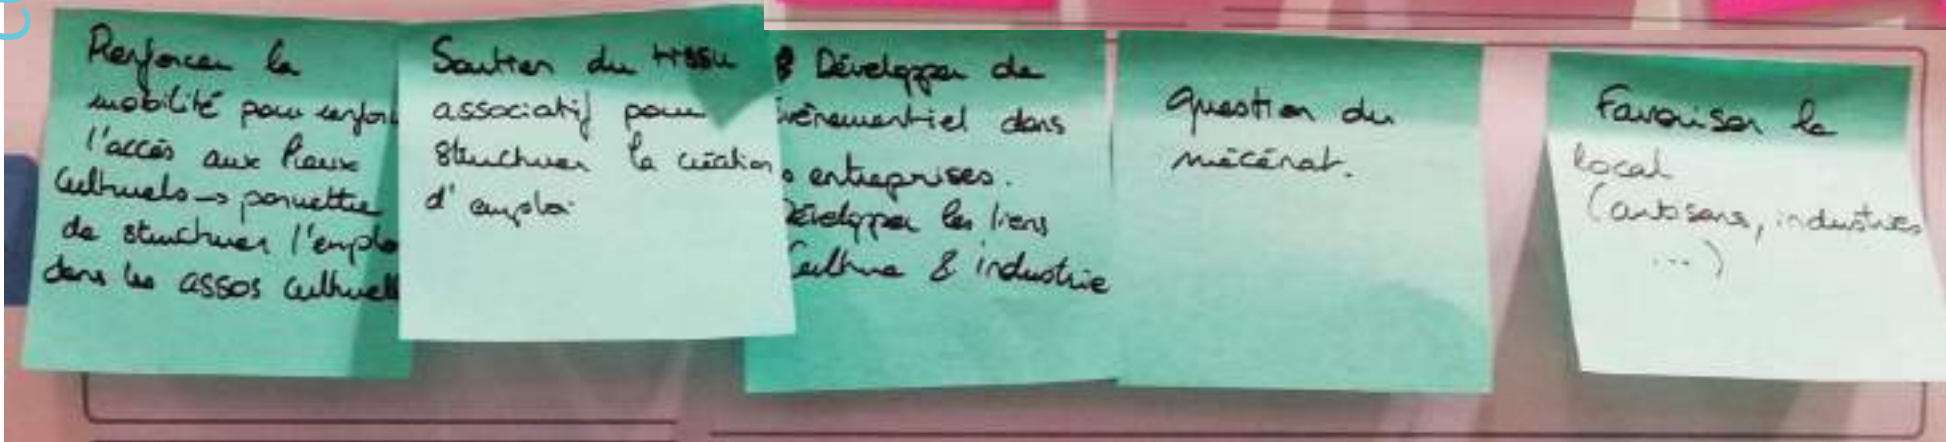 Renforcer la
mobilité pour renfor
l'accès aux lieux
Culturels → permettre
de structurer l'emplo
dans les assos culturell
Soutien du tissu
associatif pour
structurer la création
d'emploi
Développer de
évènementiel dans
s entreprises.
Développer les liens
Culture & industrie
question du
mécénat.
Favoriser le
local
(artisans, industries
...)